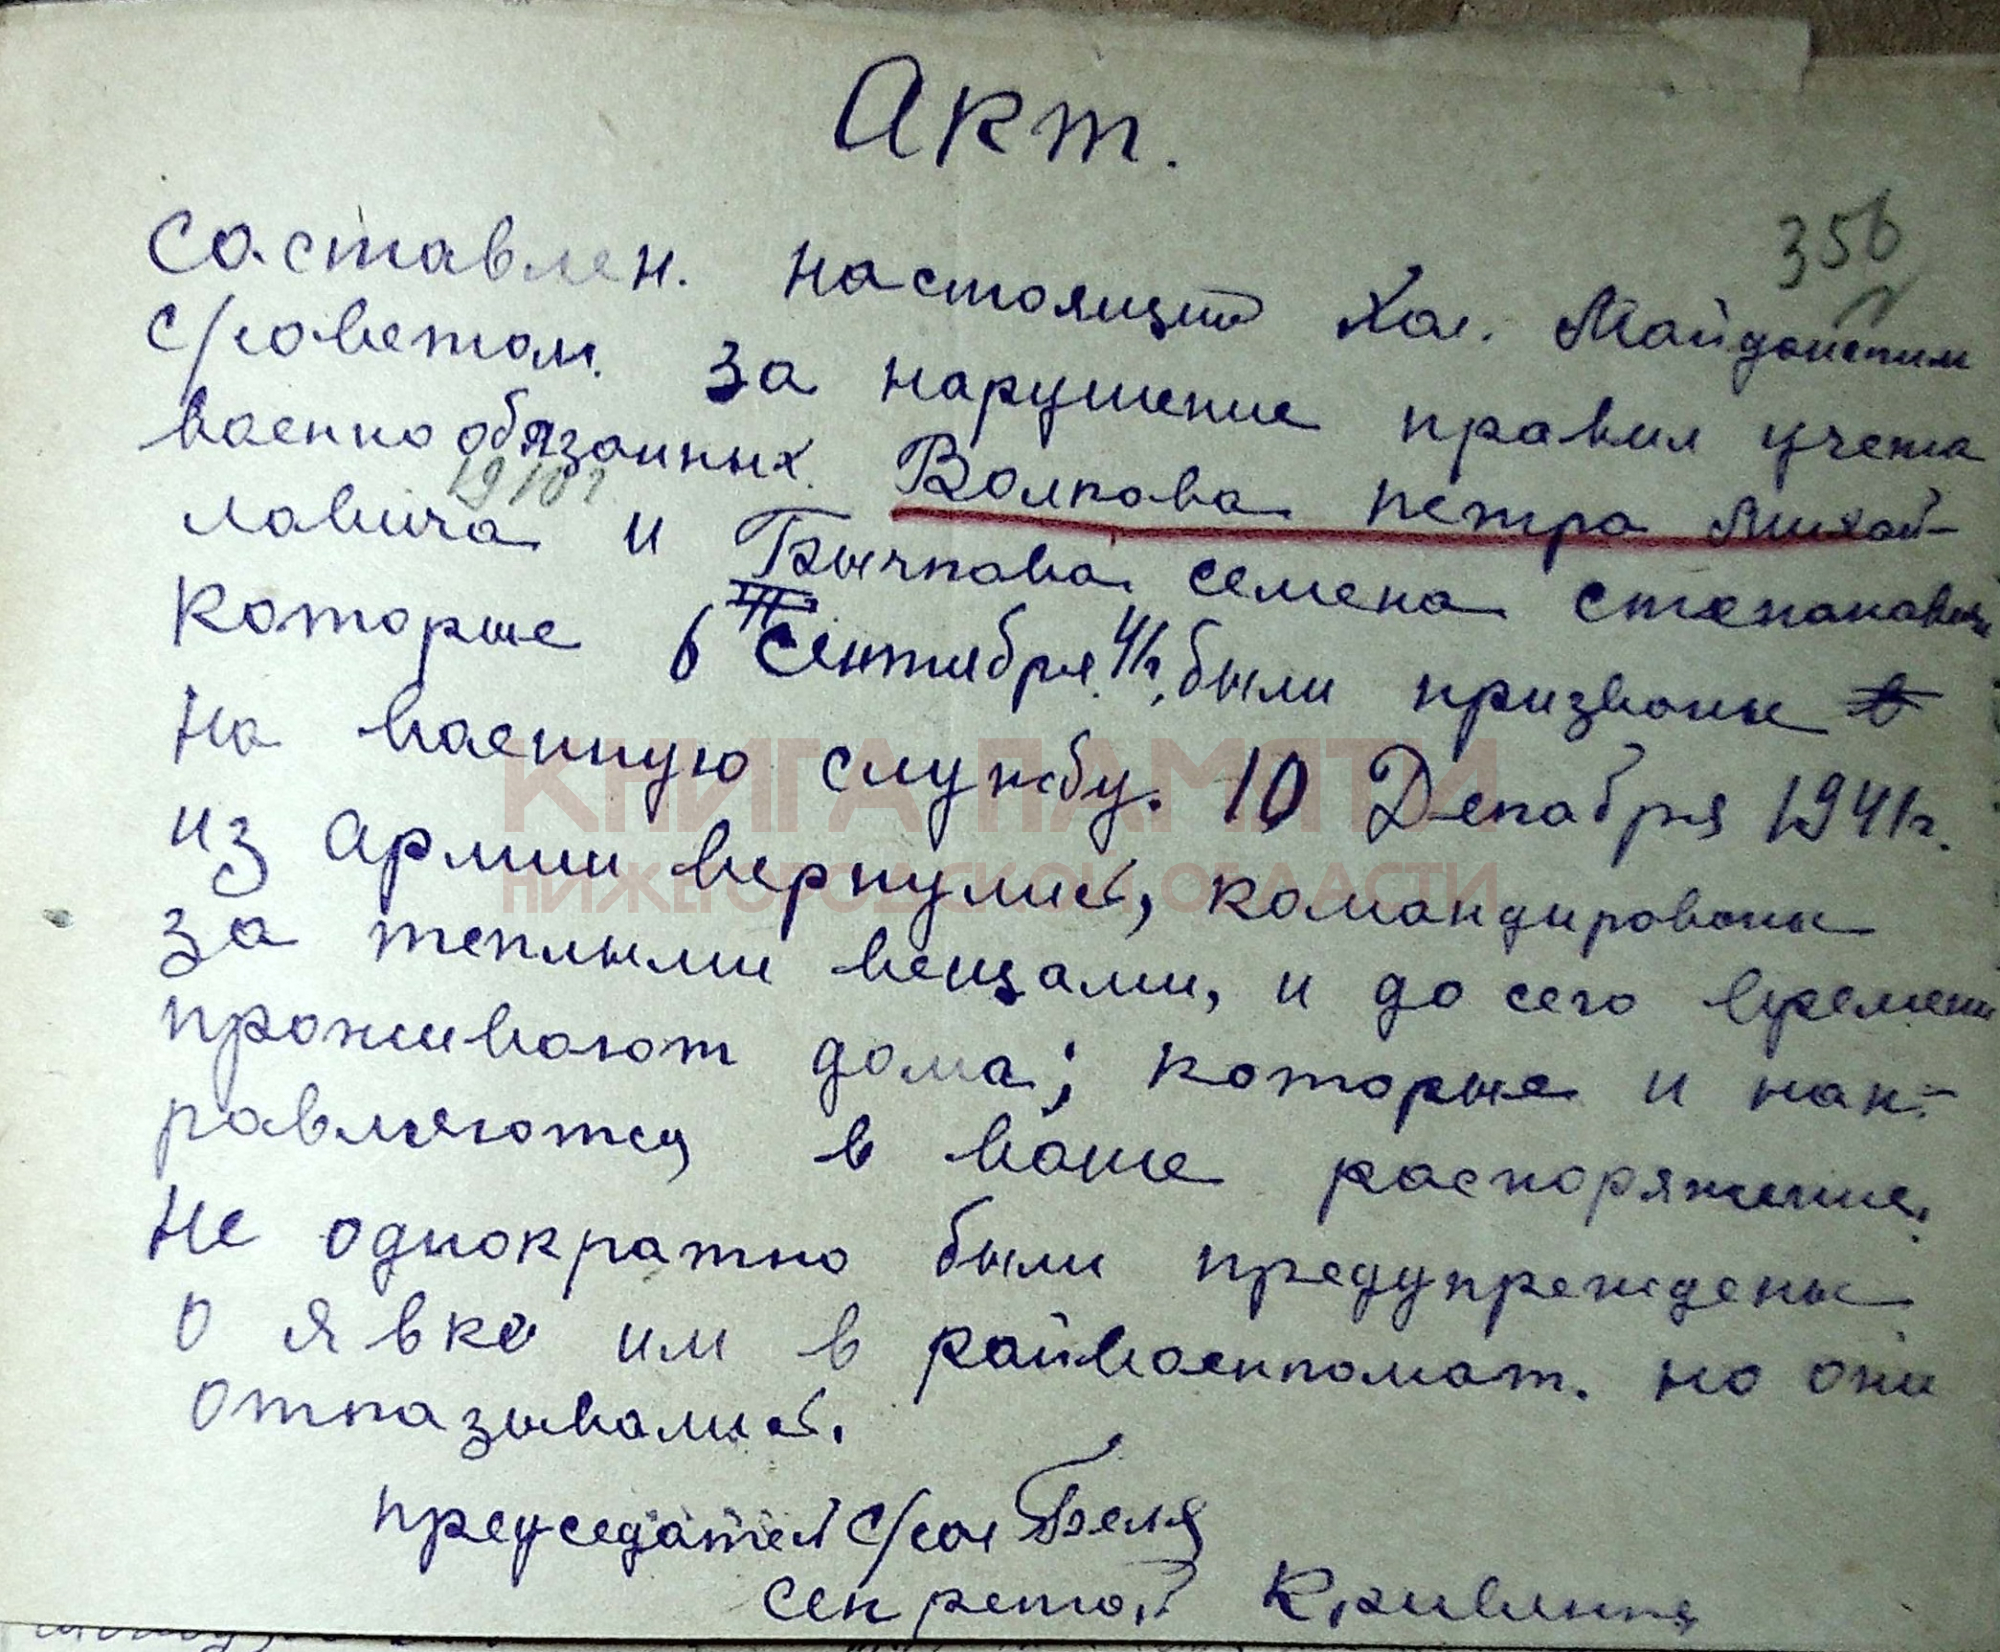 Акт.
356
составлен. настоящий Хол. Майданским
с/советом. за нарушение правил учета
военно обязанных. Волкова петра Михай-
1910г.
ловича и Бычкова семена степанович
которые 6 Сентября 41г. были призваны
На военную службу. 10 Декабря 1941г.
КНИГА ПАМЯТИ
НИЖЕГОРОДСКОЙ ОБЛАСТИ
из армии вернулись, командированы
за теплыми вещами, и до сего времени
проживают дома; которые и нап-
равляются в ваше распоряжение.
Не однократно были предупреждены
о явке им в райвоенкомат. но они
отказывались.
председатель с/сов
секретарь